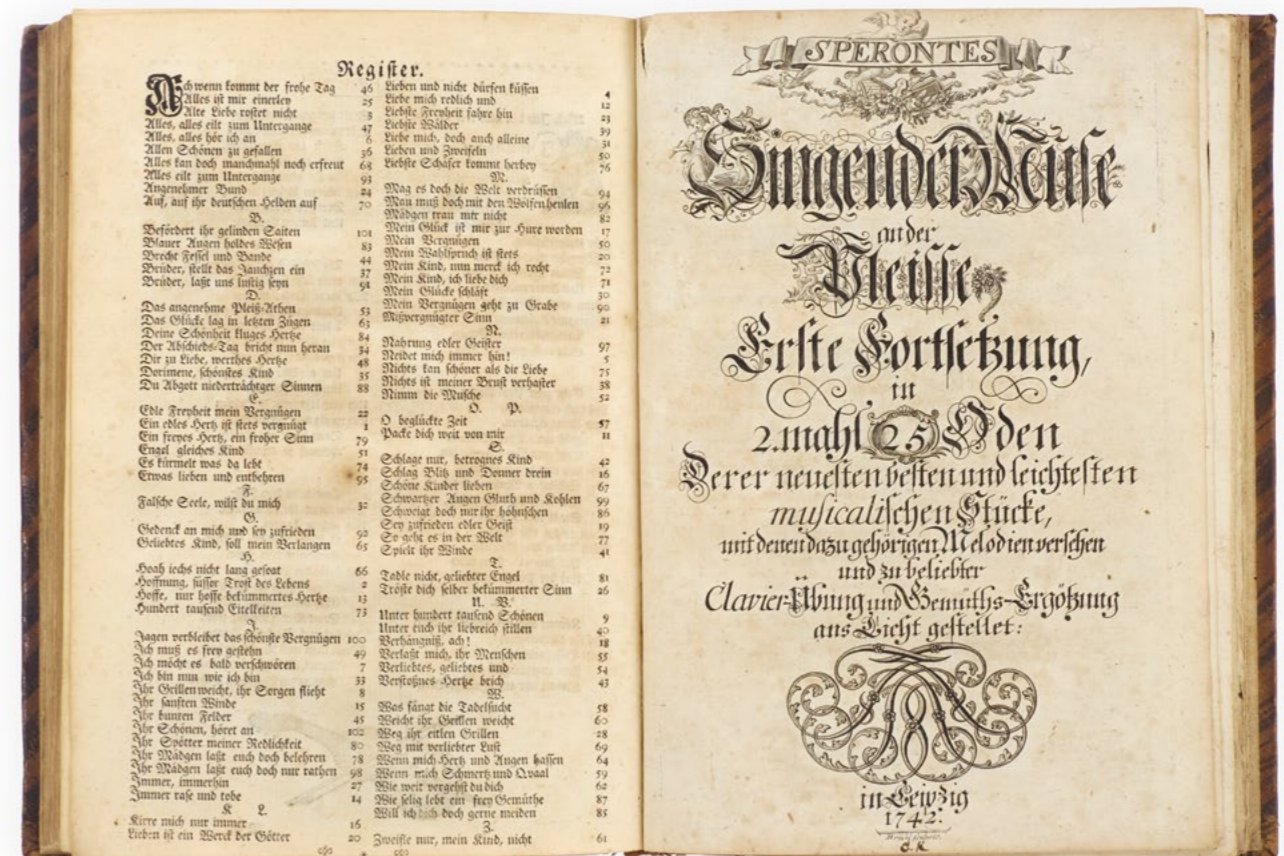 Register.
Ach wenn kommt der frohe Tag 46
Alles ist mir einerley 25
Alte Liebe rostet nicht 3
Alles, alles eilt zum Untergange 47
Alles, alles hör ich an 6
Allen Schönen zu gefallen 36
Alles kan doch manchmahl noch erfreut 68
Alles eilt zum Untergange 93
Angenehmer Bund 24
Auf, auf ihr deutschen Helden auf 70
B.
Befördert ihr gelinden Saiten 101
Blauer Augen holdes Wesen 83
Brecht Fessel und Bande 44
Brüder, stellt das Jauchzen ein 37
Brüder, laßt uns lustig seyn 91
D.
Das angenehme Pleiß-Athen 53
Das Glücke lag in letzten Zügen 63
Deine Schönheit kluges Hertze 84
Der Abschieds-Tag bricht nun heran 34
Dir zu Liebe, werthes Hertze 48
Dorimene, schönstes Kind 35
Du Abgott niederträchtger Sinnen 88
E.
Edle Freyheit mein Vergnügen 22
Ein edles Hertz ist stets vergnügt 1
Ein freyes Hertz, ein froher Sinn 79
Engel gleiches Kind 51
Es türmelt was da lebt 74
Etwas lieben und entbehren 95
F.
Falsche Seele, wilst du mich 32
G.
Gedenck an mich und sey zufrieden 92
Geliebtes Kind, soll mein Verlangen 65
H.
Hoah iechs nicht lang gesoat 66
Hoffnung, süsser Trost des Lebens 2
Hoffe, nur hoffe bekümmertes Hertze 13
Hundert tausend Eitelkeiten 73
J.
Jagen verbleibet das schönste Vergnügen 100
Ich muß es frey gestehn 49
Ich möcht es bald verschwören 7
Ich bin nun wie ich bin 33
Ihr Grillen weicht, ihr Sorgen flieht 8
Ihr sanften Winde 15
Ihr bunten Felder 45
Ihr Schönen, höret an 102
Ihr Spötter meiner Redlichkeit 80
Ihr Mädgen laßt euch doch belehren 78
Ihr Mädgen laßt euch doch nur rathen 98
Immer, immerhin 27
Immer rase und tobe 14
K L.
Kirre mich nur immer 16
Lieben ist ein Werck der Götter 20
Lieben und nicht dürfen küssen 4
Liebe mich redlich und 12
Liebste Freyheit fahre hin 23
Liebste Wälder 39
Liebe mich, doch auch alleine 31
Lieben und Zweifeln 50
Liebste Schäfer kommt herbey 76
M.
Mag es doch die Welt verdrüssen 94
Man muß doch mit den Wölfen heulen 96
Mädgen trau mir nicht 82
Mein Glück ist mir zur Hure worden 17
Mein Vergnügen 50
Mein Wahlspruch ist stets 20
Mein Kind, nun merck ich recht 72
Mein Kind, ich liebe dich 71
Mein Glücke schläft 30
Mein Vergnügen geht zu Grabe 90
Mißvergnügter Sinn 21
N.
Nahrung edler Geister 97
Neidet mich immer hin! 5
Nichts kan schöner als die Liebe 75
Nichts ist meiner Brust verhaster 38
Nimm die Musche 52
O. P.
O beglückte Zeit 57
Packe dich weit von mir 11
S.
Schlage nur, betrognes Kind 42
Schlag Blitz und Donner drein 16
Schöne Kinder lieben 67
Schwartzer Augen Gluth und Kohlen 99
Schweigt doch nur ihr höhnschen 86
Sey zufrieden edler Geist 19
So geht es in der Welt 77
Spielt ihr Winde 41
T.
Tadle nicht, geliebter Engel 81
Tröste dich selber bekümmerter Sinn 26
U. V.
Unter hundert tausend Schönen 9
Unter euch ihr liebreich stillen 40
Verhängniß, ach! 18
Verlaßt mich, ihr Menschen 55
Verliebtes, geliebtes und 54
Verstoßnes Hertze brich 43
W.
Was fängt die Tadelsucht 58
Weicht ihr Grillen weicht 60
Weg ihr eitlen Grillen 28
Weg mit verliebter Lust 69
Wenn mich Hertz und Augen hassen 64
Wenn mich Schmertz und Qvaal 59
Wie weit vergehst du dich 62
Wie selig lebt ein frey Gemüthe 87
Will ich dich doch gerne meiden 85
Z.
Zweifle nur, mein Kind, nicht 61
SPERONTES
Singender Muse
an der
Pleisse
Erste Fortsetzung,
in
2.mahl 25 Oden
Derer neuesten besten und leichtesten
musicalischen Stücke,
mit denen dazu gehörigen Melodien versehen
und zu beliebter
Clavier-Übung und Gemüths-Ergötzung
ans Licht gestellet:
in Leipzig
1742.